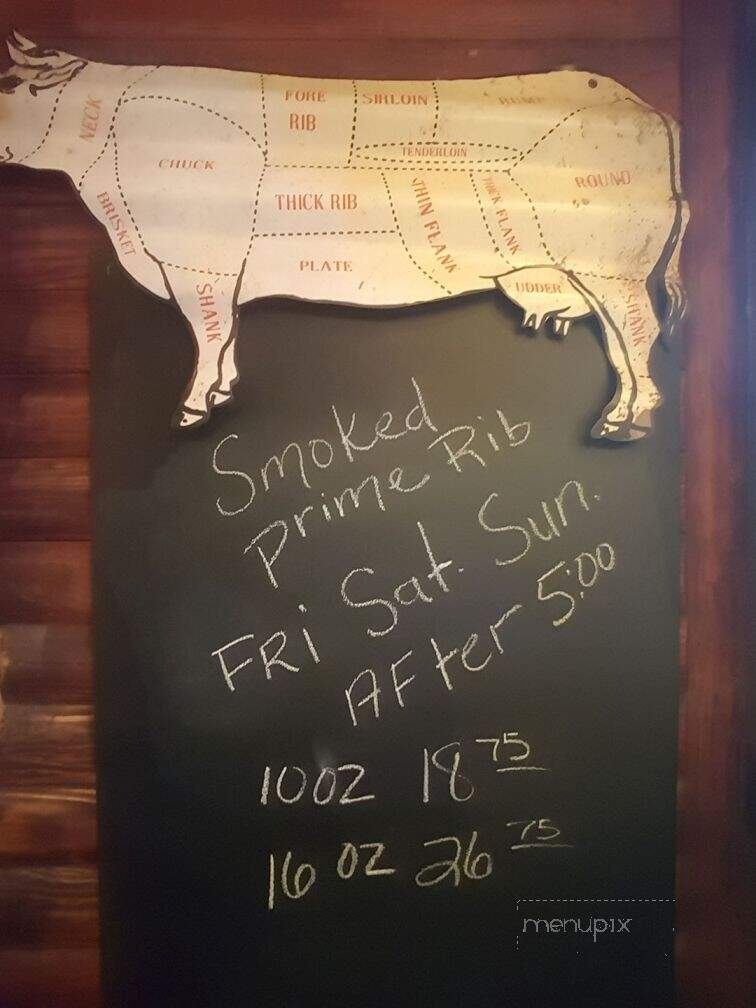 NECK
FORE
RIB
SIRLOIN
RUMP
CHUCK
TENDERLOIN
ROUND
BRISKET
THICK RIB
THIN FLANK
THICK FLANK
PLATE
UDDER
SHANK
SHANK
Smoked
Prime Rib
FRi Sat. Sun.
AFter 5:00
10 OZ 18 75
16 OZ 26 75
menupix